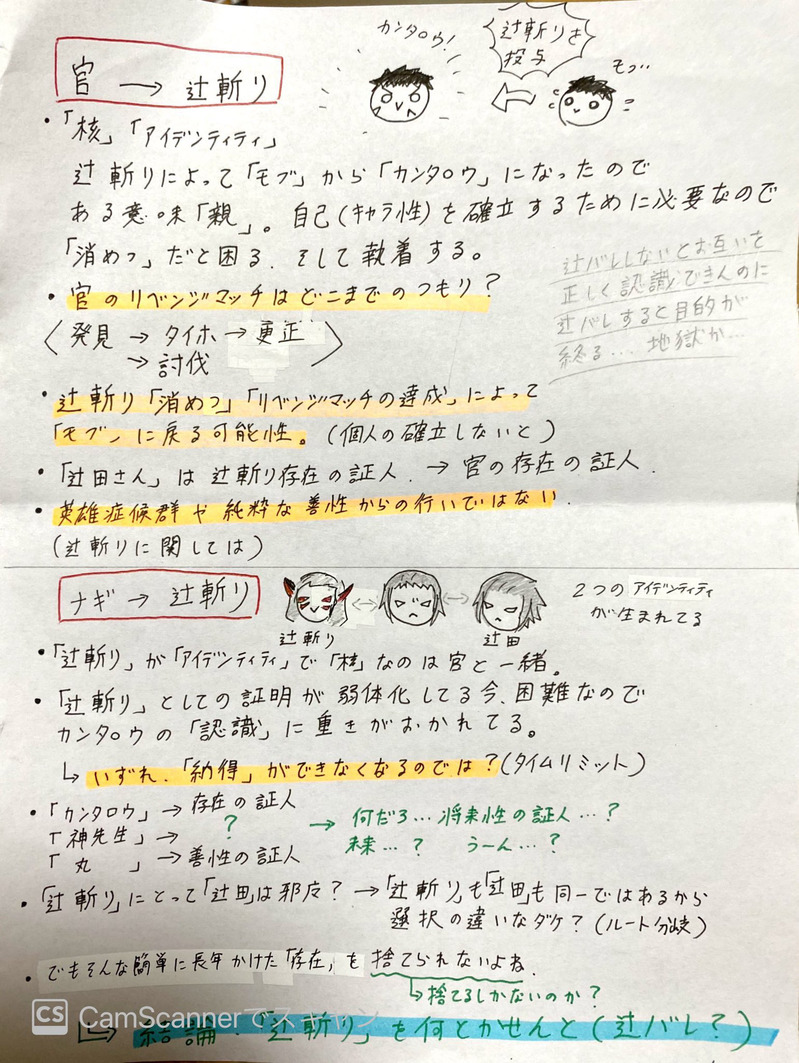 カンタロウ!
辻斬りを
投与
モブ‥
官 → 辻斬り
・「核」「アイデンティティ」
辻斬りによって「モブ」から「カンタロウ」になったので
ある意味「親」。自己(キャラ性)を確立するために必要なので
「消めつ」だと困る、そして執着する。
辻バレしないとお互いを
正しく認識できんのに
辻バレすると目的が
終る… 地獄か…
・官のリベンジマッチはどこまでのつもり?
〈発見 → タイホ → 更正
→ 討伐 〉
・辻斬り「消めつ」「リベンジマッチの達成」によって
「モブ」に戻る可能性。(個人の確立しないと)
・「辻田さん」は辻斬り存在の証人. → 官の存在の証人.
・英雄症候群や純粋な善性からの行いではない.
(辻斬りに関しては)
ナギ → 辻斬り
辻斬り
辻田
2つのアイデンティティ
が生まれてる
・「辻斬り」が「アイデンティティ」で「核」なのは官と一緒。
・「辻斬り」としての証明が弱体化してる今、困難なので
カンタロウの「認識」に重きがおかれてる。
↳ いずれ、「納得」ができなくなるのでは?(タイムリミット)
・「カンタロウ」→ 存在の証人
「神先生」→ ?
「丸 」→ 善性の証人
→ 何だろ… 将来性の証人…?
未来…? うーん…?
・「辻斬り」にとって「辻田」は邪広? →「辻斬り」も「辻田」も同一ではあるから
選択の違いなダケ?(ルート分岐)
・でもそんな簡単に長年かけた「存在」を捨てられないよね.
↳捨てるしかないのか?
CS CamScannerでスキャン
↳ 結論・「辻斬り」を何とかせんと(辻バレ?)